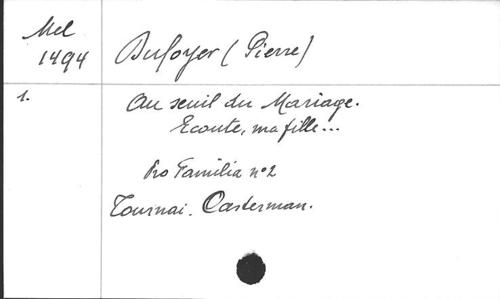 Mel
1494
Dufoyer (Pierre)
1.
Au seuil du Mariage.
Ecoute, ma fille...
Pro Familia n°2
Tournai. Casterman.